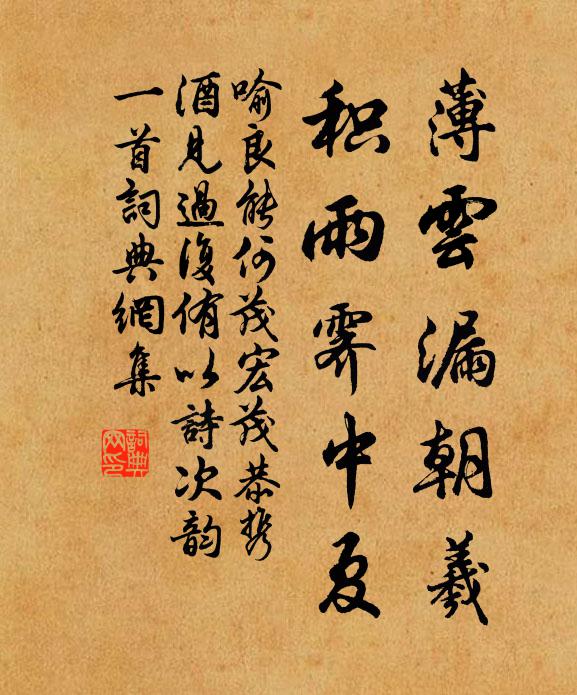 薄雲漏朝羲
积雨霁中夏
喻良能何茂宏茂恭携
酒見過復侑以詩次韵
一首詞典網集
詞典网印